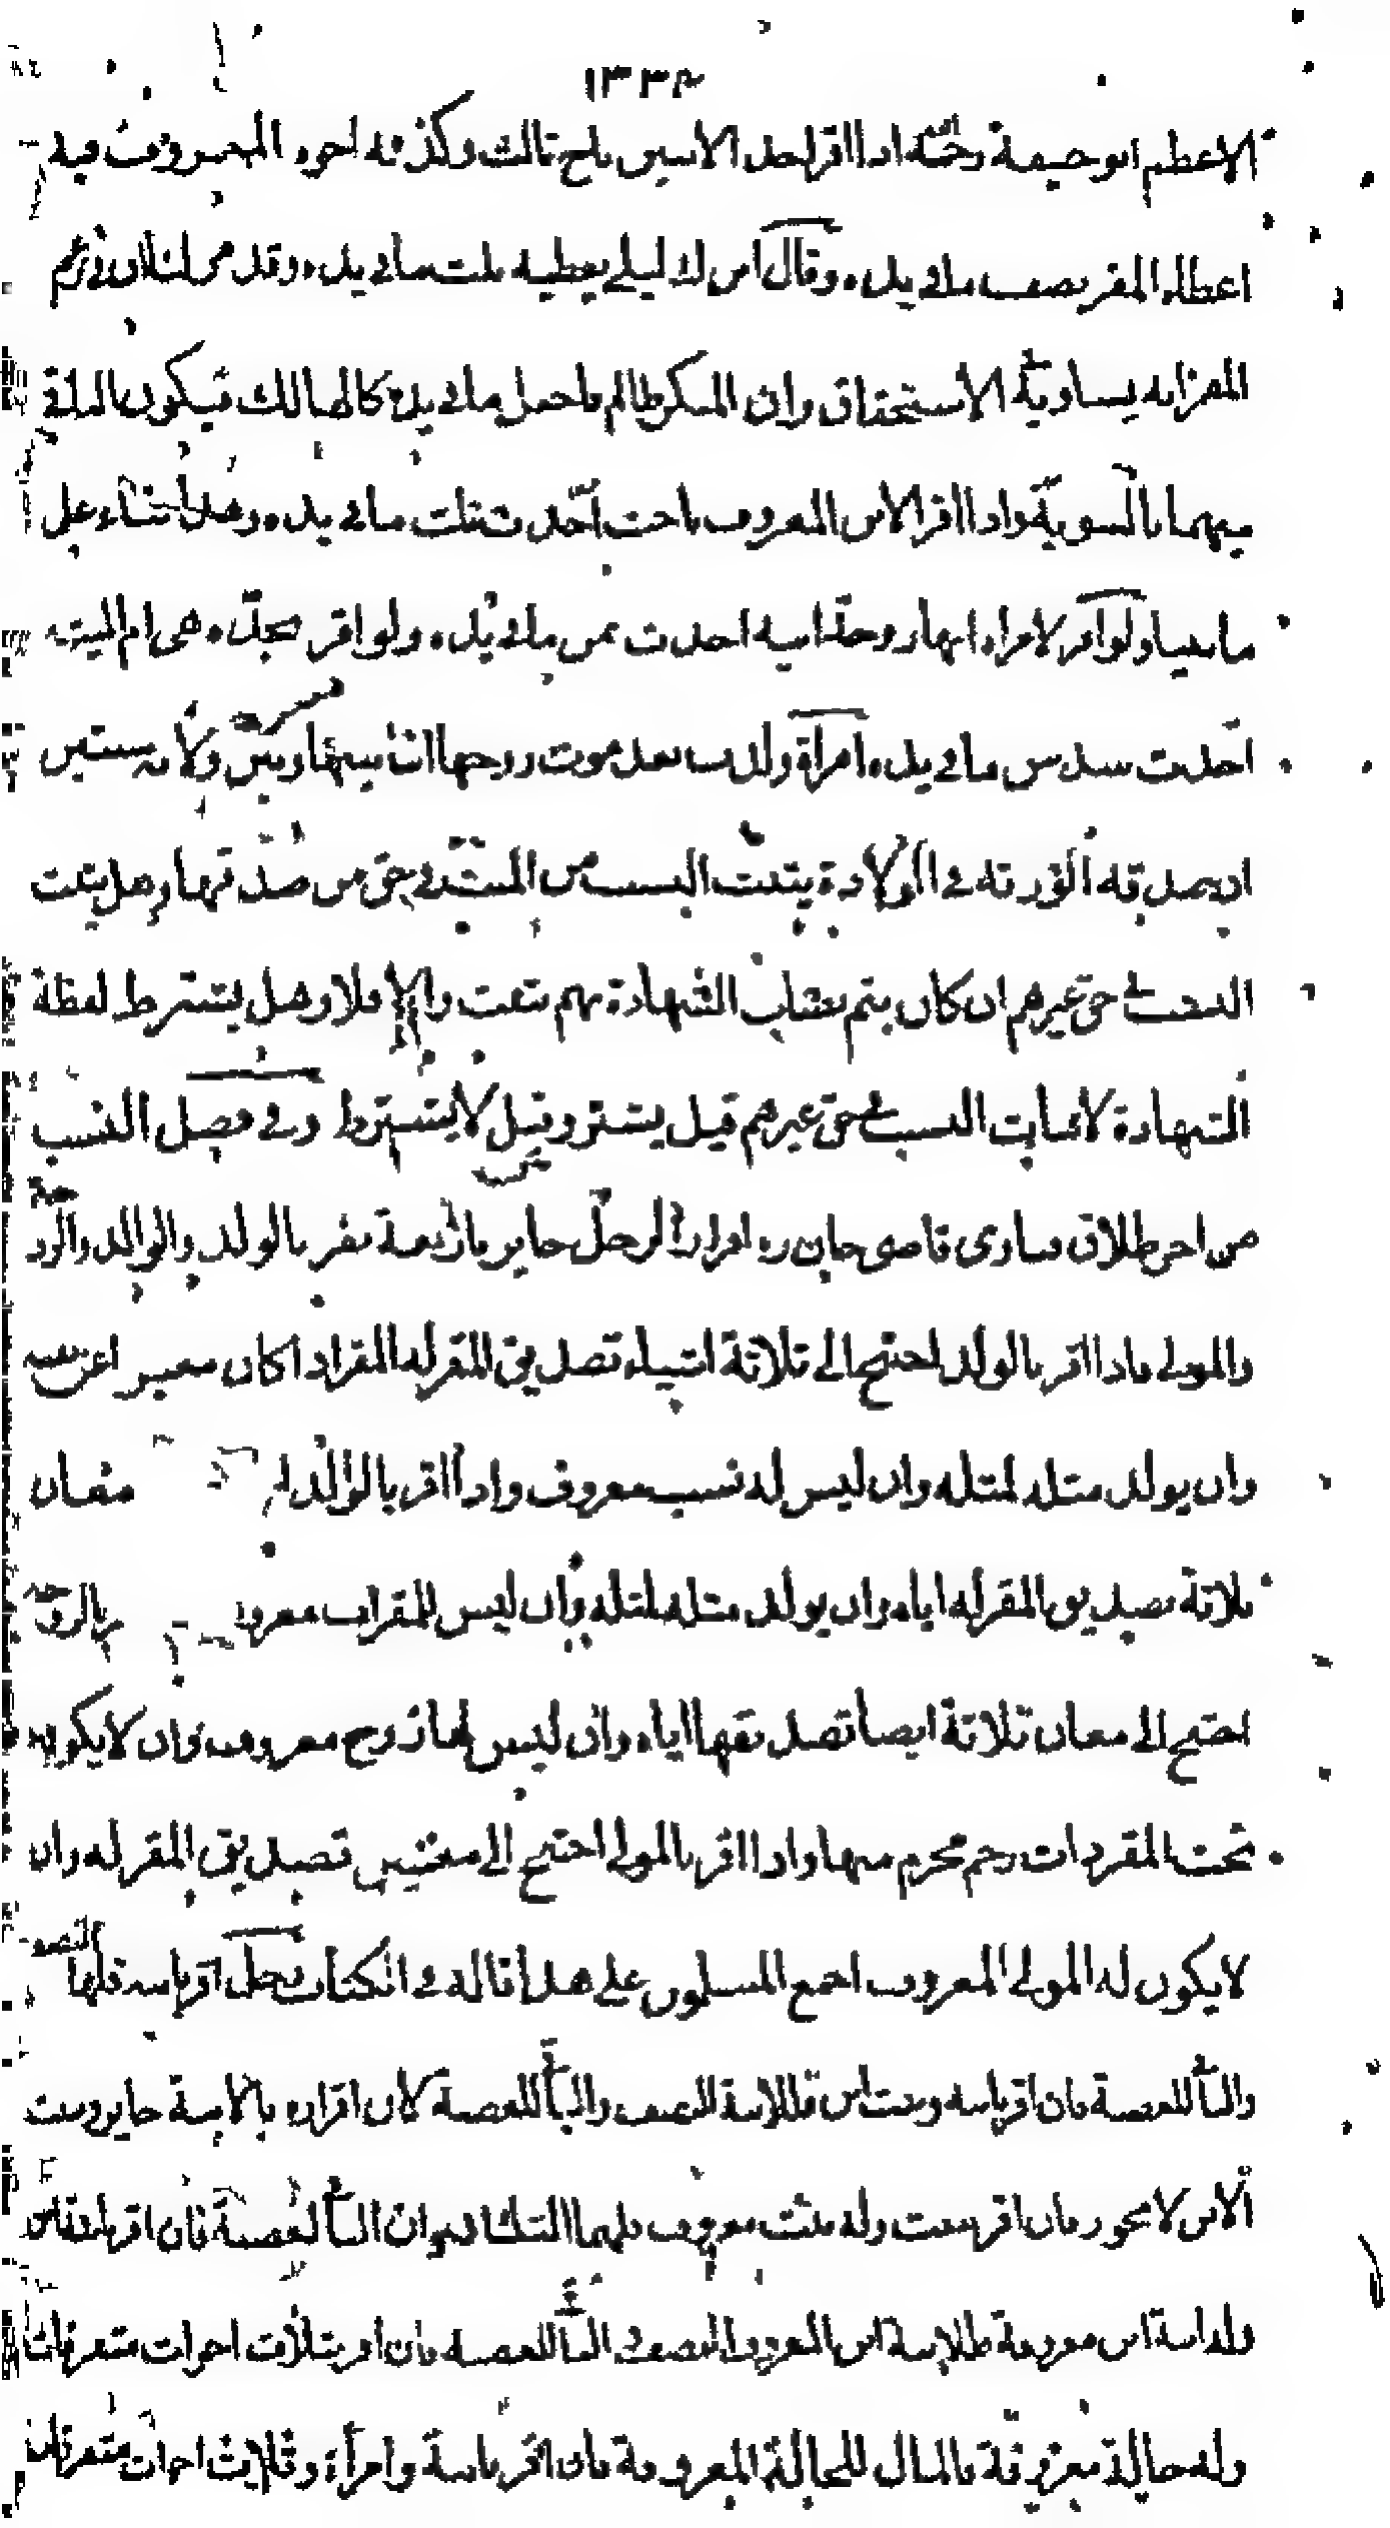 ١٣٣٤
الاعظم ابو حنيفة رحمه الله اذا اقر احد الابنين باخ ثالث وكذبه اخوه المعروف فيه
اعطاه المقر نصف ما في يده وقال ابن ابي ليلى يعطيه ثلث ما في يده وقد من لنا لان في زعم
المقر انه يساويه في الاستحقاق وان المنكر ظالم فاجعل ما في يده كالهالك فيكون الباقي
بينهما بالسوية واذا اقر الابن المعروف باخت اخذت ثلث ما في يده وهذا بناء على
ما بينا ولو اقر لامراة انها زوجة ابيه اخذت ثمن ما في يده ولو اقر بجدة هى ام الميت
اخذت سدس ما في يده امراة ولدت بعد موت زوجها ما بينها وبين ولادته سنتين
ان صدقه الورثة في الولادة يثبت النسب من الميت في حق من صدقها وهل يثبت
النسب في حق غيرهم ان كان يتم نصاب الشهادة بهم يثبت والا فلا وهل يشترط لفظة
الشهادة لاثبات النسب في حق غيرهم قيل يشترط وقيل لا يشترط وفي فصل النسب
من اخر طلاق فتاوى قاضى خان ره اقرار الرجل جايز باربعة نفر بالولد والوالد والزوجة
والمولى فاذا اقر بالولد احتيج الى ثلاثة اشياء تصديق المقر له المقر اذا كان يعبر عن نفسه
وان يولد مثله لمثله وان ليس له نسب معروف واذا اقر بالوالد معان
ثلاثة تصديق المقر له اياه وان يولد مثله لمثله وان ليس للمقر اب معروف بالزوجة
احتيج الى معان ثلاثة ايضا تصديقها اياه وان ليس لها زوج معروف وان لا يكون
تحت المقر ذات رحم محرم منها واذا اقر بالمولى احتيج الى معنيين تصديق المقر له وان
لا يكون له المولى المعروف اجمع المسلمون على هذا قاله في الكتاب رجل اقر بابنة فلها النصف
والباقي للعصبة فان اقر بابنة وبنت ابن فللابنة النصف والباقي للعصبة لان اقراره بالابنة جايز وبنت
الابن لا يجوز فان اقر ببنت وله بنت معروفة فلهما الثلثان وان الباقي للعصبة فان اقر بابنة ابن
وله ابنة ابن معروفة فلابنة ابن المعروفة النصف والباقي للعصبة فان اقر بثلاث اخوات متفرقات
وله خالة معروفة فالمال للخالة المعروفة فان اقر بابنة وامراة وثلاث اخوات متفرقات